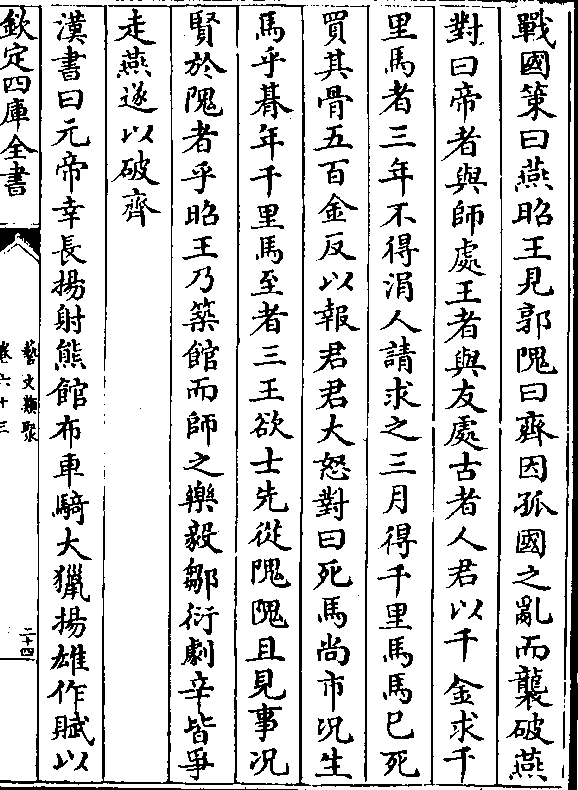 戰國策曰燕昭王見郭隗曰齊因孤國之亂而襲破燕
對曰帝者與師處王者與友處古者人君以千金求千
里馬者三年不得涓人請求之三月得千里馬馬已死
買其骨五百金反以報君君大怒對曰死馬尚市况生
馬乎朞年千里馬至者三王欲士先從隗隗且見事况
賢於隗者乎昭王乃築館而師之樂毅鄒衍劇辛皆爭
走燕遂以破齊
漢書曰元帝幸長揚射熊館布車騎大獵揚雄作賦以
欽定四庫全書
藝文類聚
卷六十三
二十四